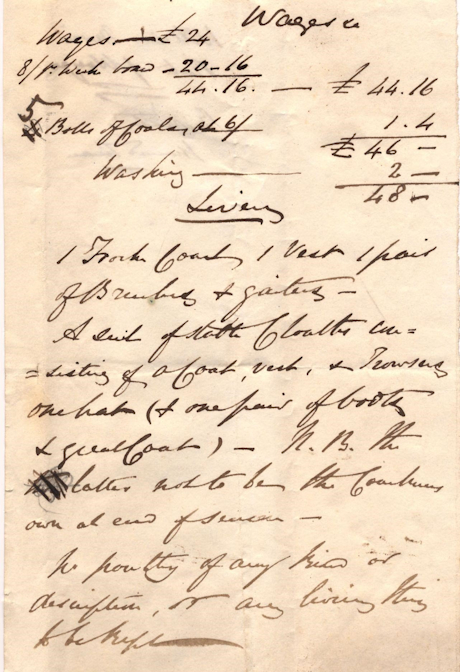 Wages &c
Wages — £ 24
8/ pr. Week board — 20-16
44.16. — £ 44.16
5 Bolls of Coals at 6/ 1.4
£ 46 —
Washing — 2 —
48 -
Livery
1 Frock Coat, 1 Vest 1 pair
of Breeches & gaiters —
A suit of stable Cloaths con=
=sisting of a Coat, vest, & Trowsers
one hat (& one pair of boots
& great Coat) — N.B. the
latter not to be the Coachmans
own at end of season —
No poultry of any kind or
description, or any living thing
to be kept —